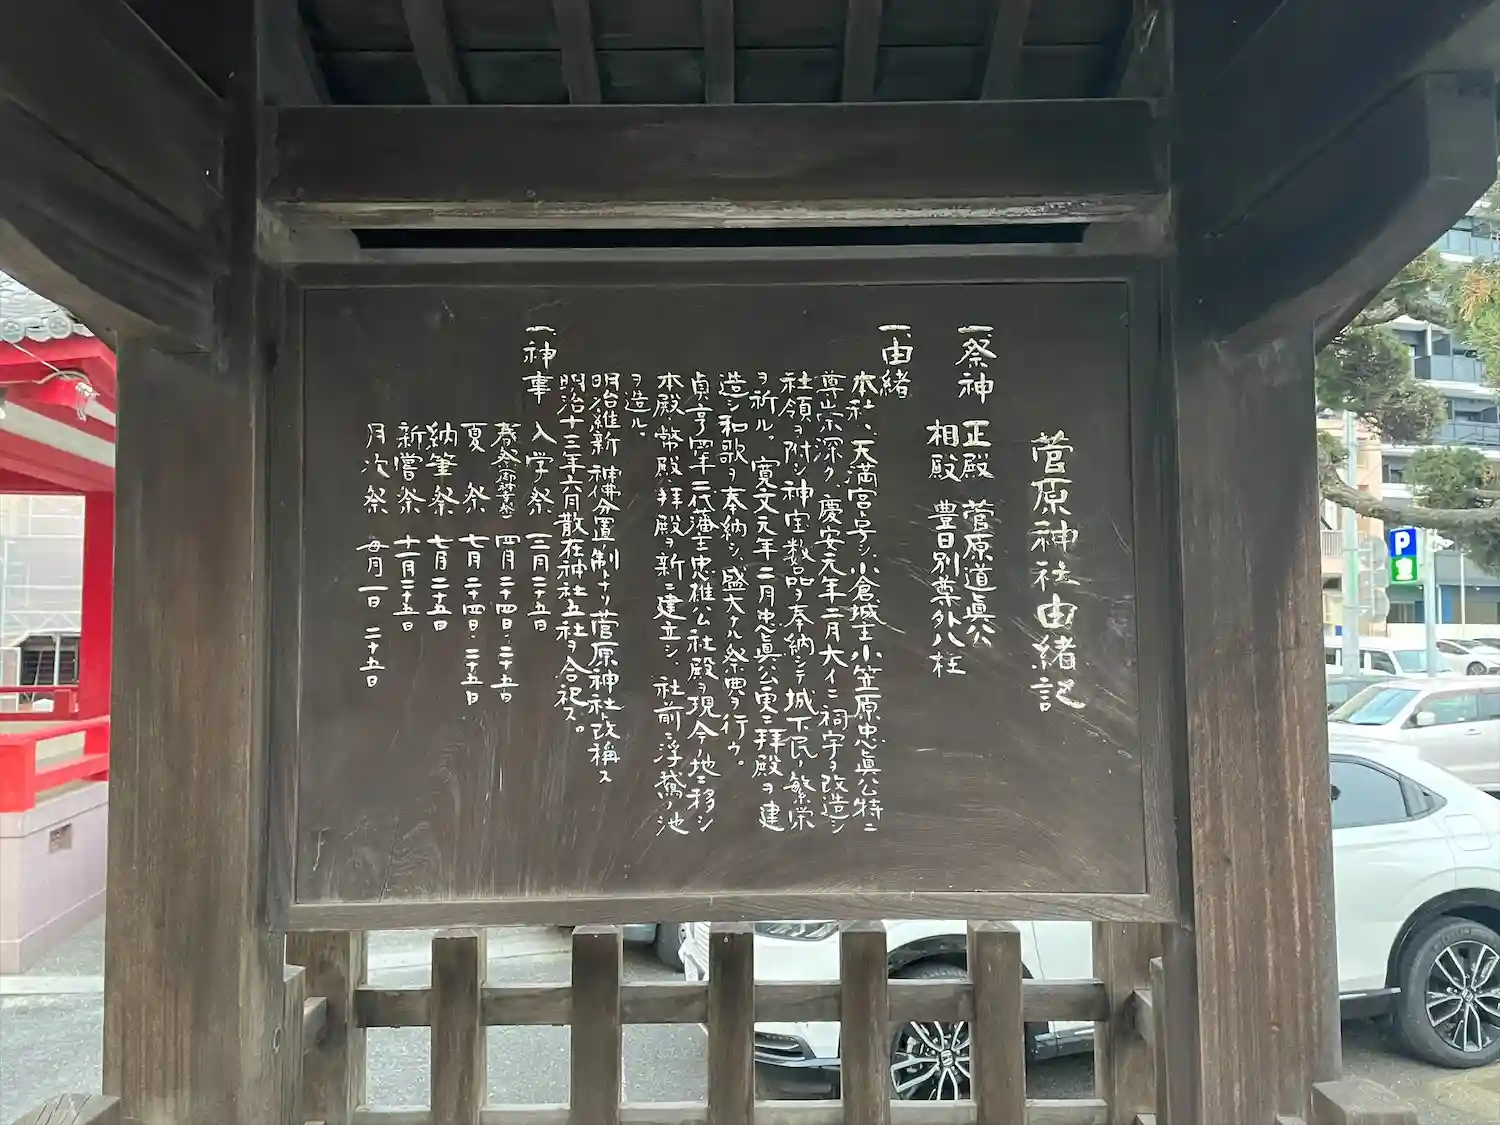 菅原神社由緒記
一、祭神 正殿 菅原道眞公
相殿 豊日別業外八柱
一、由緒
本社ハ天満宮ト号シ小倉城主小笠原忠眞公特ニ
尊崇深ク慶安元年二月大イニ祠宇ヲ改造シ
社領ヲ附シ神宝数品ヲ奉納シテ城下民ノ繁栄
ヲ祈ル。寛文元年二月忠眞公更ニ拝殿ヲ建
造シ和歌ヲ奉納シ、盛大ナル祭典ヲ行ウ。
貞亨四年二代藩主忠雄公社殿ヲ現今ノ地ニ移シ
本殿幣殿拝殿ヲ新ニ建立シ、社前ニ浮鵞ノ池
ヲ造ル。
明治維新神佛分置制トナリ菅原神社ト改稱ス
明治十三年六月散在神社五社ヲ合祀ス。
一、神事 入学祭 三月二十五日
春祭 四月二十四日・二十五日
夏祭 七月二十四日・二十五日
納筆祭 七月二十五日
新嘗祭 十一月二十五日
月次祭 毎月一日 二十五日
P